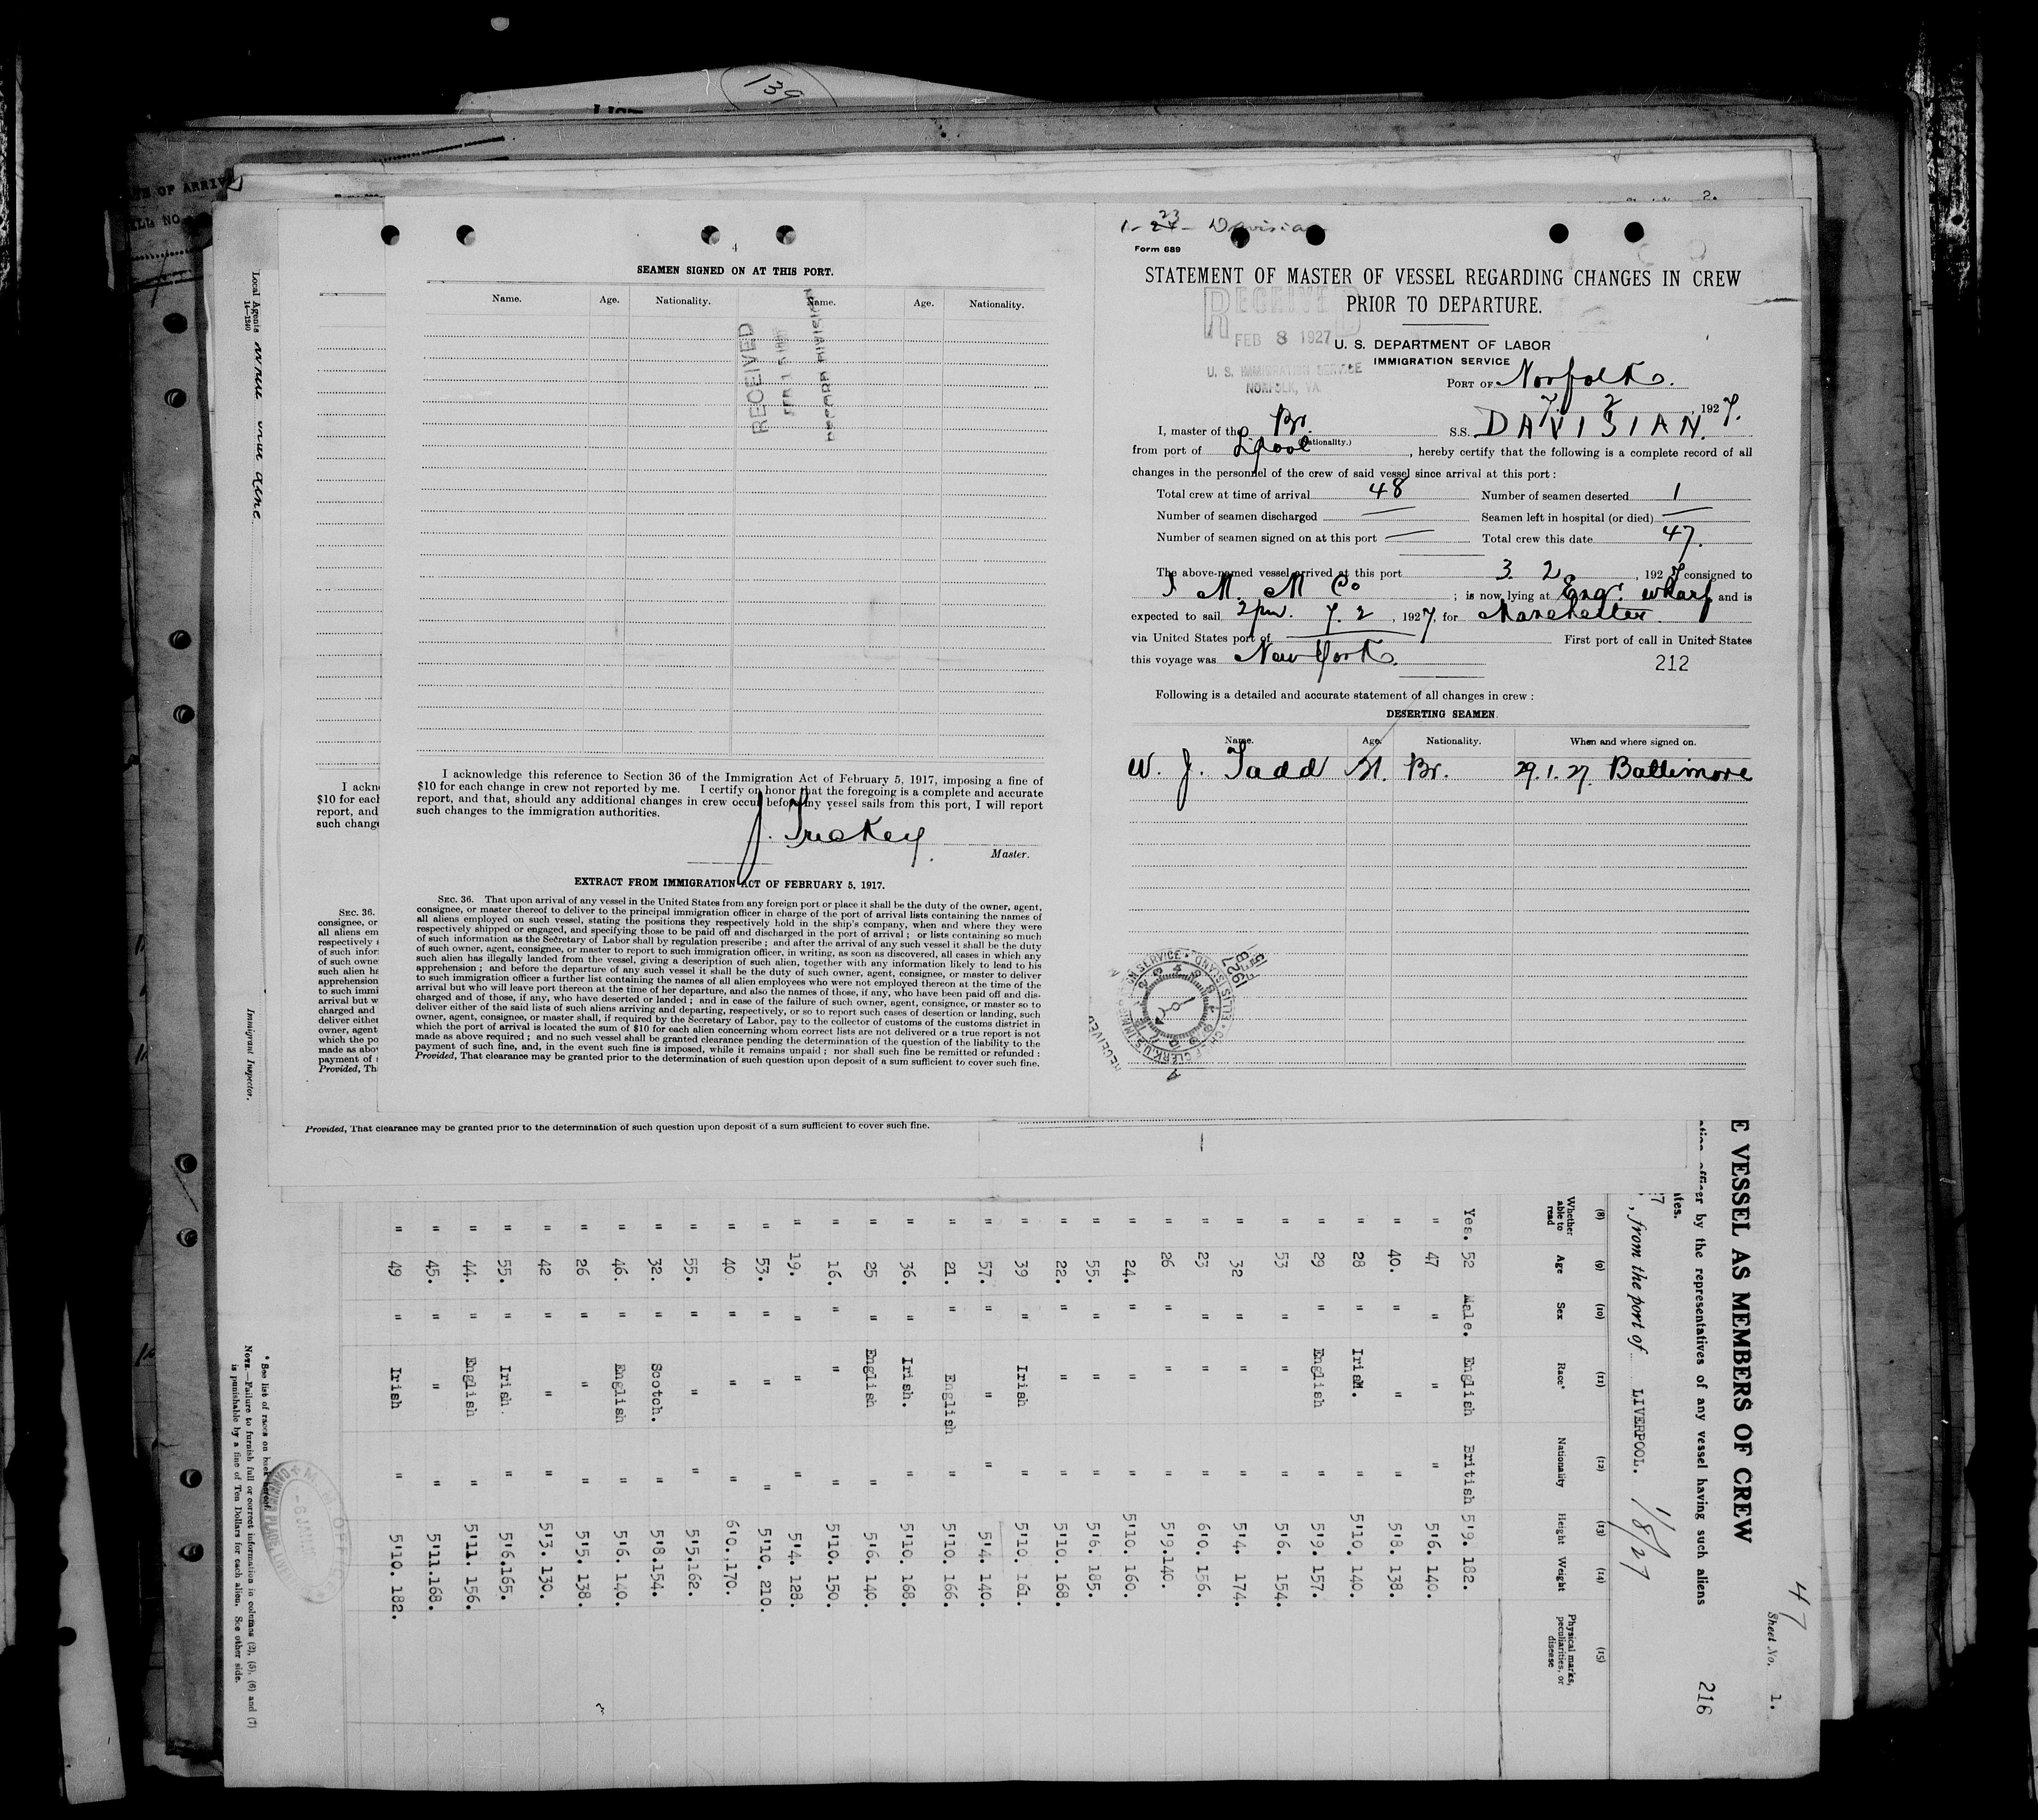 139
LIST
2.
OF ARRIV
NO.
Local Agents
14—1240
Line
Immigrant Inspector.
4
SEAMEN SIGNED ON AT THIS PORT.
Name. Age. Nationality. Name. Age. Nationality.
RECEIVED
RECORD DIVISION
I acknowledge this reference to Section 36 of the Immigration Act of February 5, 1917, imposing a fine of
$10 for each change in crew not reported by me. I certify on honor that the foregoing is a complete and accurate
report, and that, should any additional changes in crew occur before my vessel sails from this port, I will report
such changes to the immigration authorities.
J. Tuckey
Master.
EXTRACT FROM IMMIGRATION ACT OF FEBRUARY 5, 1917.
SEC. 36. That upon arrival of any vessel in the United States from any foreign port or place it shall be the duty of the owner, agent,
consignee, or master thereof to deliver to the principal immigration officer in charge of the port of arrival lists containing the names of
all aliens employed on such vessel, stating the positions they respectively hold in the ship's company, when and where they were
respectively shipped or engaged, and specifying those to be paid off and discharged in the port of arrival; or lists containing so much
of such information as the Secretary of Labor shall by regulation prescribe; and after the arrival of any such vessel it shall be the duty
of such owner, agent, consignee, or master to report to such immigration officer, in writing, as soon as discovered, all cases in which any
such alien has illegally landed from the vessel, giving a description of such alien, together with any information likely to lead to his
apprehension; and before the departure of any such vessel it shall be the duty of such owner, agent, consignee, or master to deliver
to such immigration officer a further list containing the names of all alien employees who were not employed thereon at the time of the
arrival but who will leave port thereon at the time of her departure, and also the names of those, if any, who have been paid off and dis-
charged and of those, if any, who have deserted or landed; and in case of the failure of such owner, agent, consignee, or master so to
deliver either of the said lists of such aliens arriving and departing, respectively, or so to report such cases of desertion or landing, such
owner, agent, consignee, or master shall, if required by the Secretary of Labor, pay to the collector of customs of the customs district in
which the port of arrival is located the sum of $10 for each alien concerning whom correct lists are not delivered or a true report is not
made as above required; and no such vessel shall be granted clearance pending the determination of the question of the liability to the
payment of such fine, and, in the event such fine is imposed, while it remains unpaid; nor shall such fine be remitted or refunded:
Provided, That clearance may be granted prior to the determination of such question upon deposit of a sum sufficient to cover such fine.
I ackn
$10 for each
report, and
such change
SEC. 36.
consignee, or
all aliens em
respectively s
of such infor
of such owne
such alien ha
apprehension
to such immi
arrival but w
charged and
deliver either
owner, agent
which the po
made as abov
payment of
Provided, Th
Provided, That clearance may be granted prior to the determination of such question upon deposit of a sum sufficient to cover such fine.
1-23 Davisian
Form 689
STATEMENT OF MASTER OF VESSEL REGARDING CHANGES IN CREW
PRIOR TO DEPARTURE.
RECEIVED
FEB 8 1927
U. S. IMMIGRATION SERVICE
NORFOLK, VA.
U. S. DEPARTMENT OF LABOR
IMMIGRATION SERVICE
PORT OF Norfolk.
7 2, 1927.
I, master of the Br. (Nationality.) S.S. DAVISIAN.
from port of L'pool, hereby certify that the following is a complete record of all
changes in the personnel of the crew of said vessel since arrival at this port:
Total crew at time of arrival 48 Number of seamen deserted 1
Number of seamen discharged — Seamen left in hospital (or died) —
Number of seamen signed on at this port — Total crew this date 47.
The above-named vessel arrived at this port 3 2, 1927 consigned to
I M. M Co; is now lying at Engr. Wharf and is
expected to sail 2pm. 7. 2, 1927, for Manchester
via United States port of — First port of call in United States
this voyage was New York.
212
Following is a detailed and accurate statement of all changes in crew:
DESERTING SEAMEN.
Name. Age. Nationality. When and where signed on.
W. J. Tadd Br. 29. 1. 27. Baltimore
RECEIVED
CHIEF CLERK U.S. IMMIGRATION SERVICE • ELLIS ISLAND
FEB 1927
47
Sheet No. 1.
216
E VESSEL AS MEMBERS OF CREW
ation officer by the representatives of any vessel having such aliens
ates.
7, from the port of LIVERPOOL. 1/8/27
(8) (9) (10) (11) (12) (13) (14) (15)
Whether able to read Age Sex Race* Nationality Height Weight Physical marks, peculiarities, or disease
Yes. 52 Male. English British 5'9. 182.
" 47 " " " 5'6. 140.
" 40. " " " 5'8. 138.
" 28 " Irish. " 5'10. 140.
" 29 " English " 5'9. 157.
" 53 " " " 5'6. 154.
" 32 " " " 5'4. 174.
" 23 " " " 6'0. 156.
" 26 " " " 5'9.140.
" 24. " " " 5'10. 160.
" 55. " " " 5'6. 185.
" 22. " " " 5'10. 168.
" 39 " Irish " 5'10. 161.
" 57. " " " 5'4. 140.
" 21. " English " 5'10. 166.
" 36. " Irish. " 5'10. 168.
" 25 " English " 5'6. 140.
" 16. " " " 5'10. 150.
" 19. " " " 5'4. 128.
" 53. " " " 5'10. 210.
" 40 " " " 6'0. 170.
" 55. " " " 5'5.162.
" 32. " Scotch. " 5'8.154.
" 46. " English " 5'6. 140.
" 26 " " " 5'5. 138.
" 42 " " " 5'3. 130.
" 55. " Irish. " 5'6.165.
" 44. " English " 5'11. 156.
" 45. " " " 5'11.168.
" 49 " Irish " 5'10. 182.
* See list of races on back hereof.
NOTE.—Failure to furnish full or correct information in columns (2), (5), (6) and (7)
is punishable by a fine of Ten Dollars for each alien. See other side.